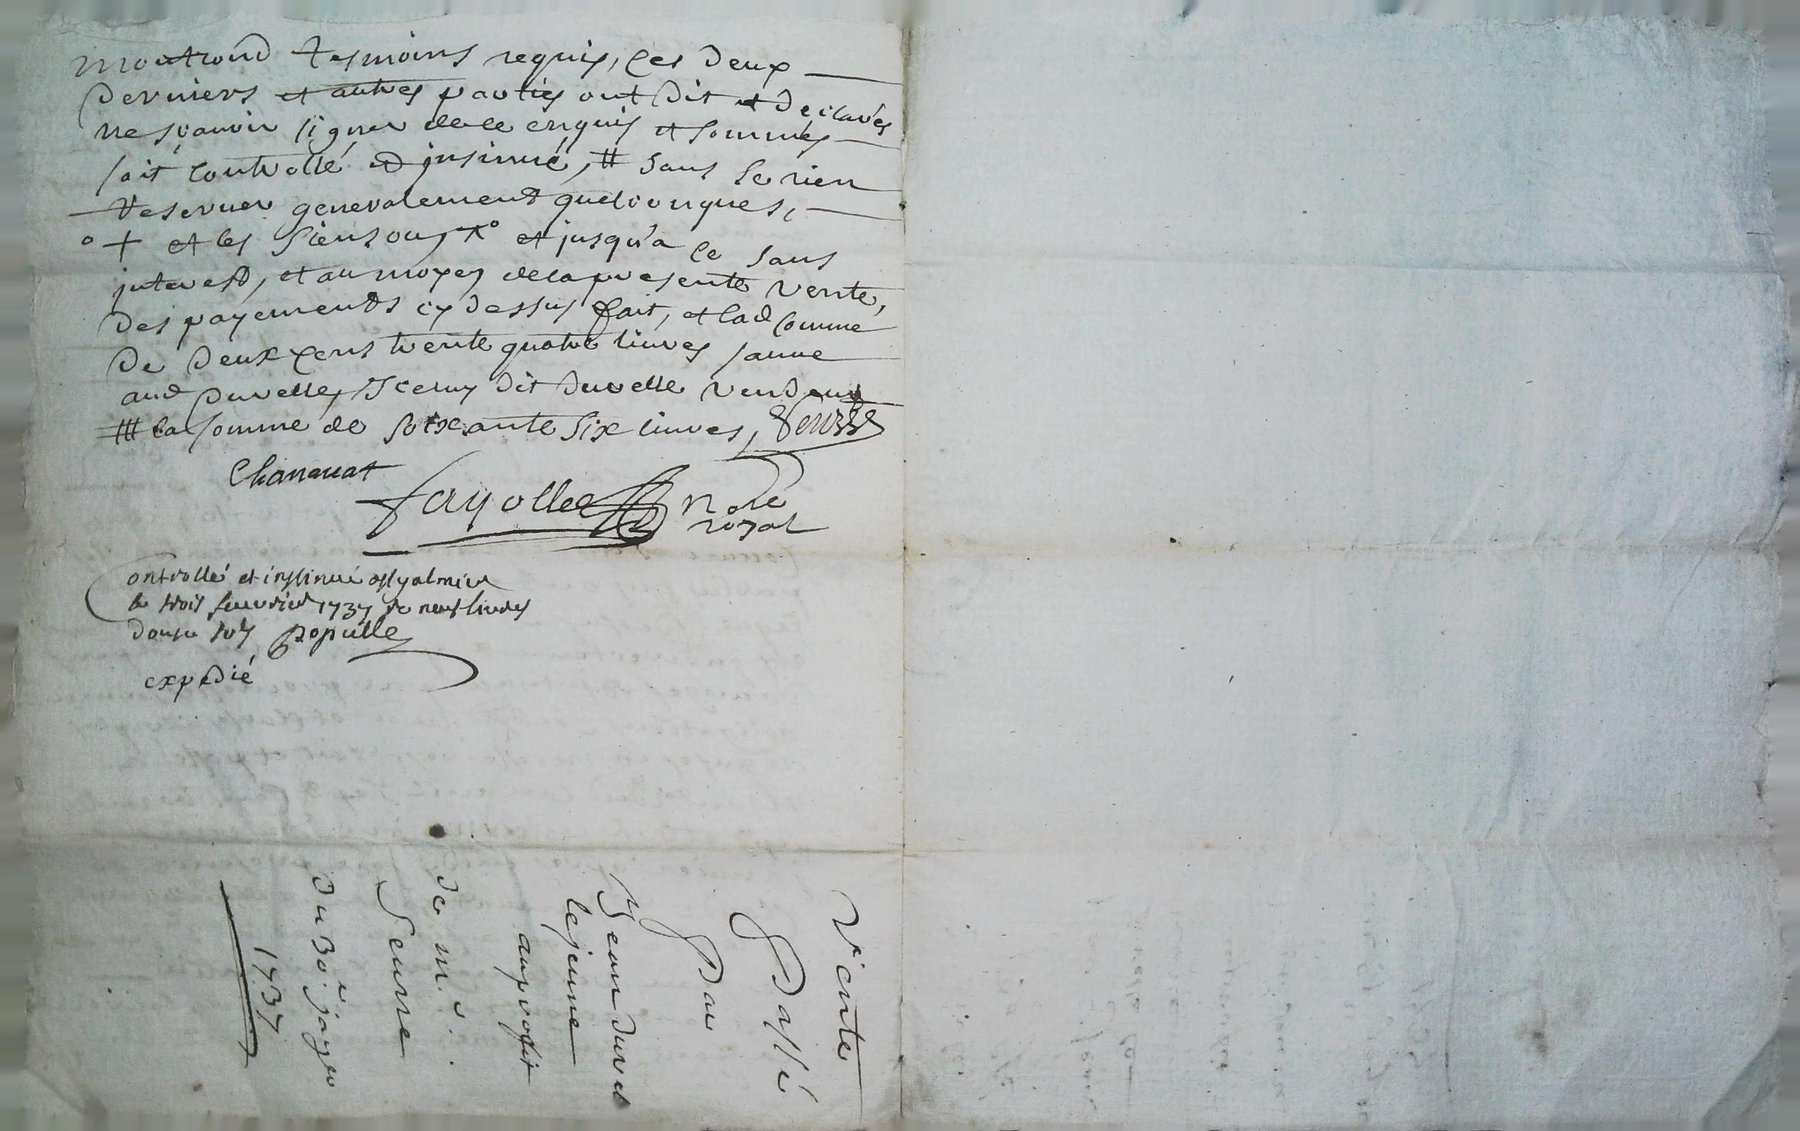 montrond tesmoins requis, les deux
derniers et autres parties ont dit et declarés
ne sçavoir signer de ce enquis et sommés
soit controllé et jnsinué, # sans se rien
reserver generalement quelconques,
et les siens ou et jusqu'a ce sans
jnterest, et au moyen de la presente vente,
des payements cy dessus fait, et lad somme
de deux cens trente quatre livres
aud Duvelle, Iceluy dit Duvelle vendeur
la somme de soixante six livres, Seurre
Chanauat
fayolle nore
royal
Controllé et insinué a
le trois feuvrier 1737 Rc neuf livres
douze sols Populle
expedié
Vente
Passé
Par
Jean duvel
le jeune
au profit
de m.e
Seurre
du
1737